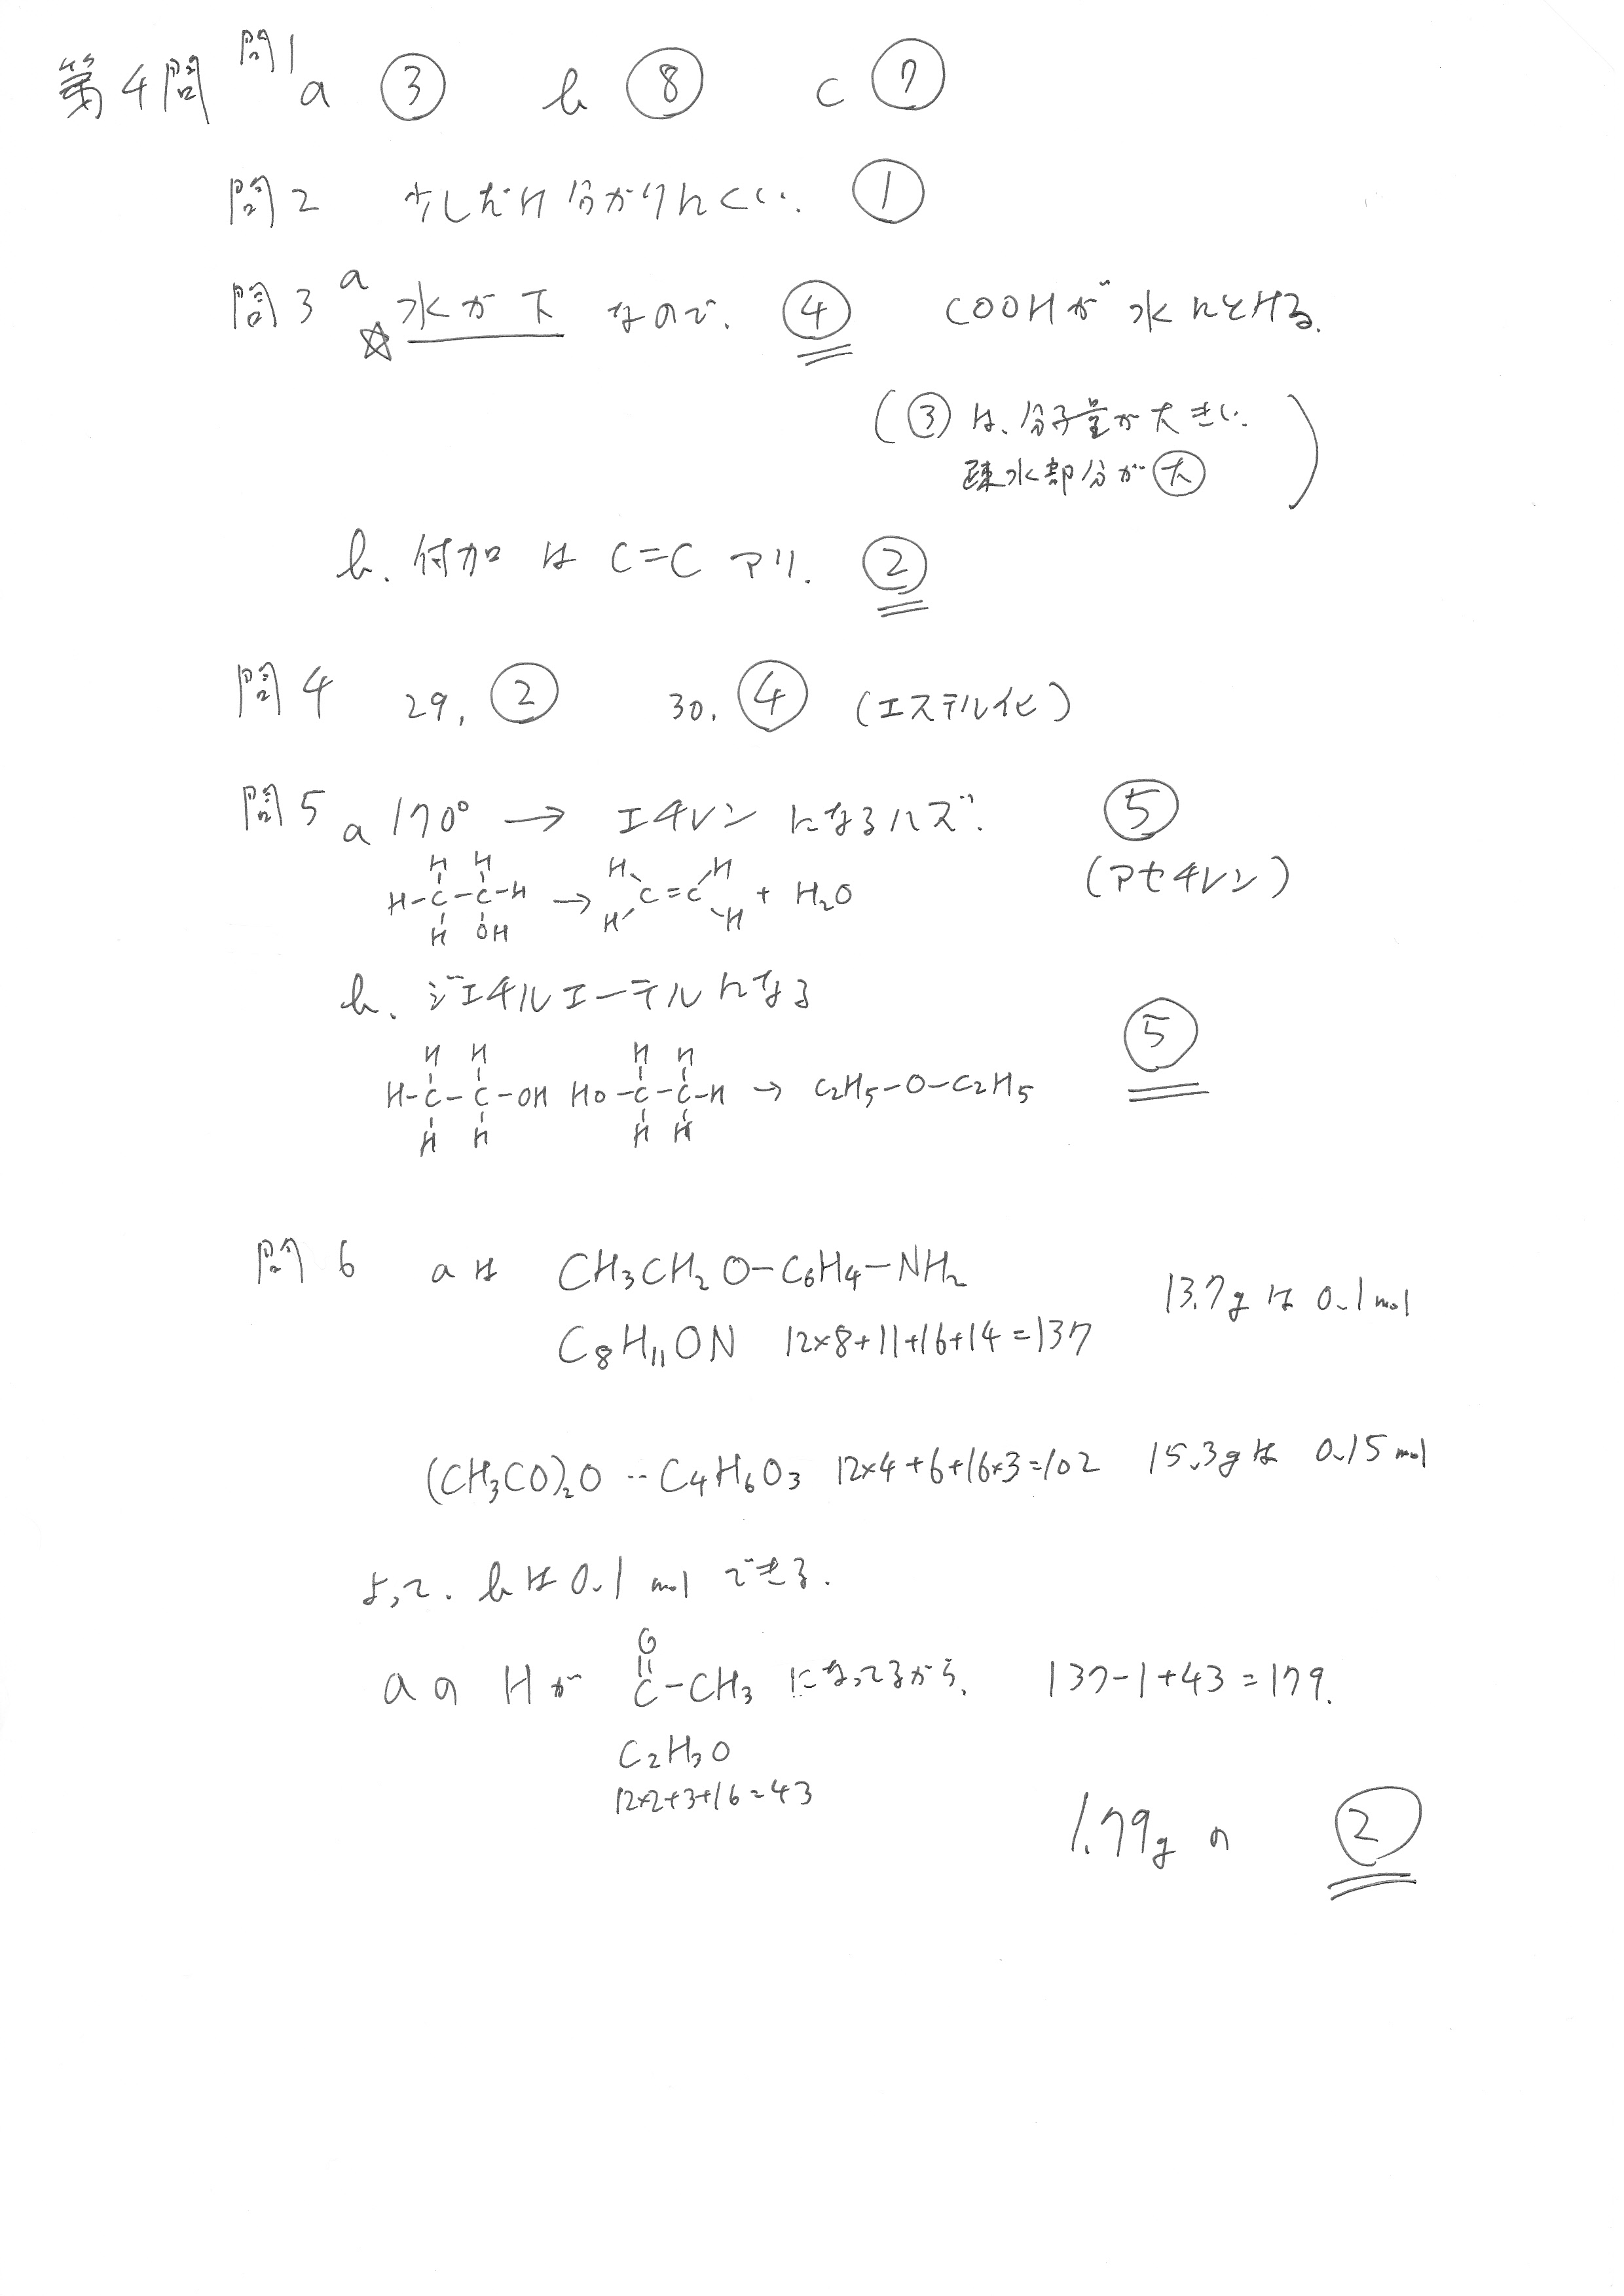 第4問 問1 a ③ b ⑧ c ⑦
問2 少しだけ分かりにくい. ①
問3 a ☆水が下 なので、 ④ COOHが水にとける.
(③は、分子量が大きい.
疎水部分が大)
b. 付加は C=C アリ. ②
問4 29, ② 30. ④ (エステル化)
問5 a 170° → エチレンになるハズ. ⑤
(アセチレン)
H H H H
H-C-C-H → C=C + H2O
H OH H H
b. ジエチルエーテルになる
⑤
H H H H
H-C-C-OH HO-C-C-H → C2H5-O-C2H5
H H H H
問6 aは CH3CH2O-C6H4-NH2
13.7gは 0.1mol
C8H11ON 12×8+11+16+14=137
(CH3CO)2O ‥ C4H6O3 12×4+6+16×3=102 15.3gは 0.15mol
よって. bは0.1mol できる.
O
aの Hが C-CH3 になってるから. 137-1+43=179.
C2H3O
12×2+3+16=43
1.79gの ②